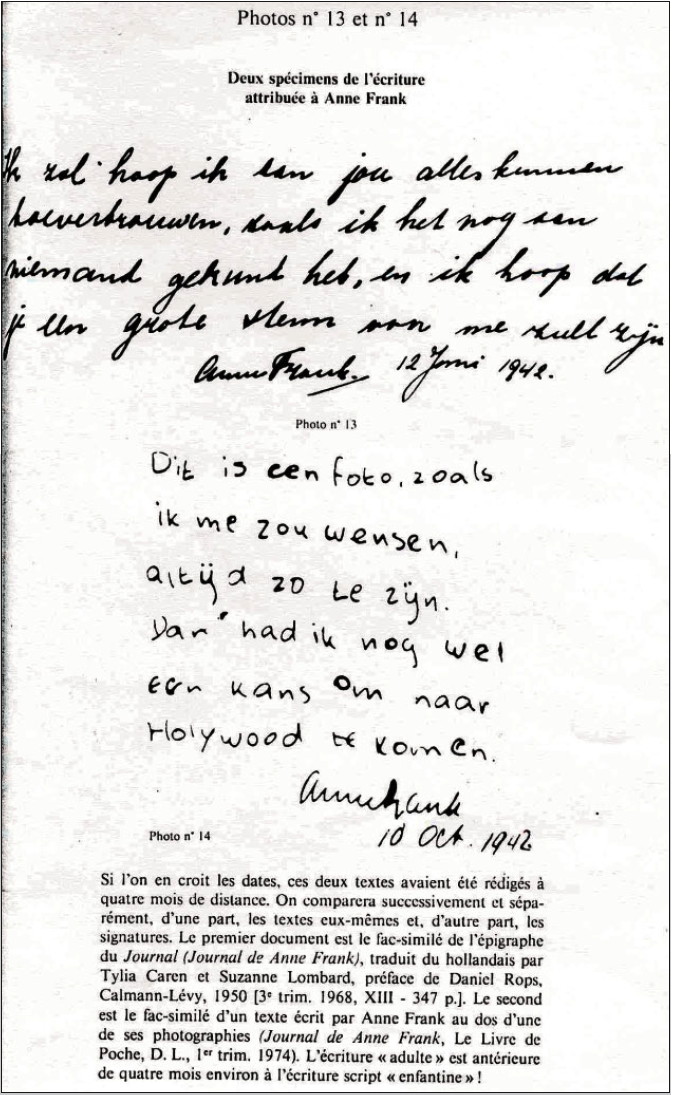 Photos n° 13 et n° 14
Deux spécimens de l'écriture
attribuée à Anne Frank
Ik zal hoop ik aan jou alles kunnen
toevertrouwen, zoals ik het nog aan
niemand gekund heb, en ik hoop dat
je een grote steun voor me zult zijn
Anne Frank. 12 Juni 1942.
Photo n° 13
Dit is een foto, zoals
ik me zou wensen,
altijd zo te zijn.
Dan had ik nog wel
een kans om naar
Holywood te komen.
Annefrank
10 Oct. 1942
Photo n° 14
Si l'on en croit les dates, ces deux textes avaient été rédigés à
quatre mois de distance. On comparera successivement et sépa-
rément, d'une part, les textes eux-mêmes et, d'autre part, les
signatures. Le premier document est le fac-similé de l'épigraphe
du Journal (Journal de Anne Frank), traduit du hollandais par
Tylia Caren et Suzanne Lombard, préface de Daniel Rops,
Calmann-Lévy, 1950 [3e trim. 1968, XIII - 347 p.]. Le second
est le fac-similé d'un texte écrit par Anne Frank au dos d'une
de ses photographies (Journal de Anne Frank, Le Livre de
Poche, D. L., 1er trim. 1974). L'écriture « adulte » est antérieure
de quatre mois environ à l'écriture script « enfantine » !